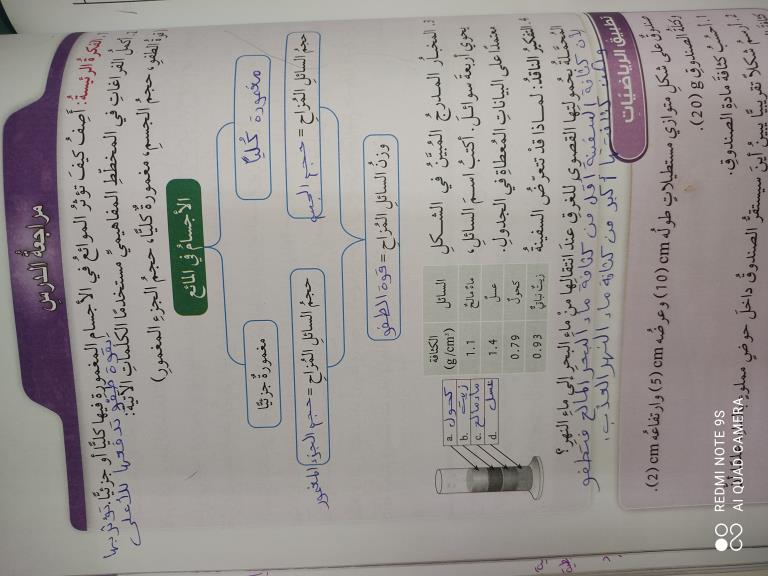 مراجعةُ الدرسِ
1. الفكرةُ الرئيسةُ: أَصِفُ كيفَ تؤثرُ الموائعُ في الأجسامِ المغمورةِ فيها كليًّا أو جزئيًّا. تؤثر بها
بقوة طفو تدفعها للأعلى
2. أكملُ الفراغاتِ في المخططِ المفاهيميِّ مستخدمًا الكلماتِ الآتيةَ:
(قوةُ الطفوِ، حجمُ الجسمِ، مغمورةٌ كليًّا، حجمُ الجزءِ المغمورِ)
الأجسامُ في المائعِ
مغمورة كليًّا
مغمورةٌ جزئيًّا
حجمُ السائلِ المُزاحِ = حجم الجسم
حجمُ السائلِ المُزاحِ = حجم الجزء المغمور
وزنُ السائلِ المُزاحِ = قوة الطفو
3. المخبارُ المدرجُ المُبيّنُ في الشكلِ
يحوي أربعةَ سوائلَ. أكتبُ اسمَ السائلِ،
معتمدًا على البياناتِ المُعطاةِ في الجدولِ.
السائل الكثافة (g/cm³)
ماءٌ مالحٌ 1.1
عسلٌ 1.4
كحولٌ 0.79
زيتٌ نباتيٌّ 0.93
a. كحول
b. زيت
c. ماء مالح
d. عسل
4. التفكيرُ الناقدُ: لماذا قدْ تتعرّضُ السفينةُ
المُحمَّلةُ بحُمولتِها القصوى للغرقِ عندَ انتقالِها منْ ماءِ البحرِ إلى ماءِ النهرِ؟
لأن كثافة السفينة أقل من كثافة ماء البحر المالح فتطفو
كثافتها أكبر من كثافة ماء النهر العذب.
تطبيق الرياضيات
صندوقٌ على شكلِ متوازي مستطيلاتٍ طولُه cm (10) وعرضُه cm (5) وارتفاعُه cm (2).
وكتلةُ الصندوقِ g (20).
1. أحسُبُ كثافةَ مادةِ الصندوقِ.
2. أرسمُ شكلًا تقريبيًّا يبيّنُ أينَ سيستقرُّ الصندوقُ داخلَ حوضٍ مملوءٍ
REDMI NOTE 9S
AI QUAD CAMERA